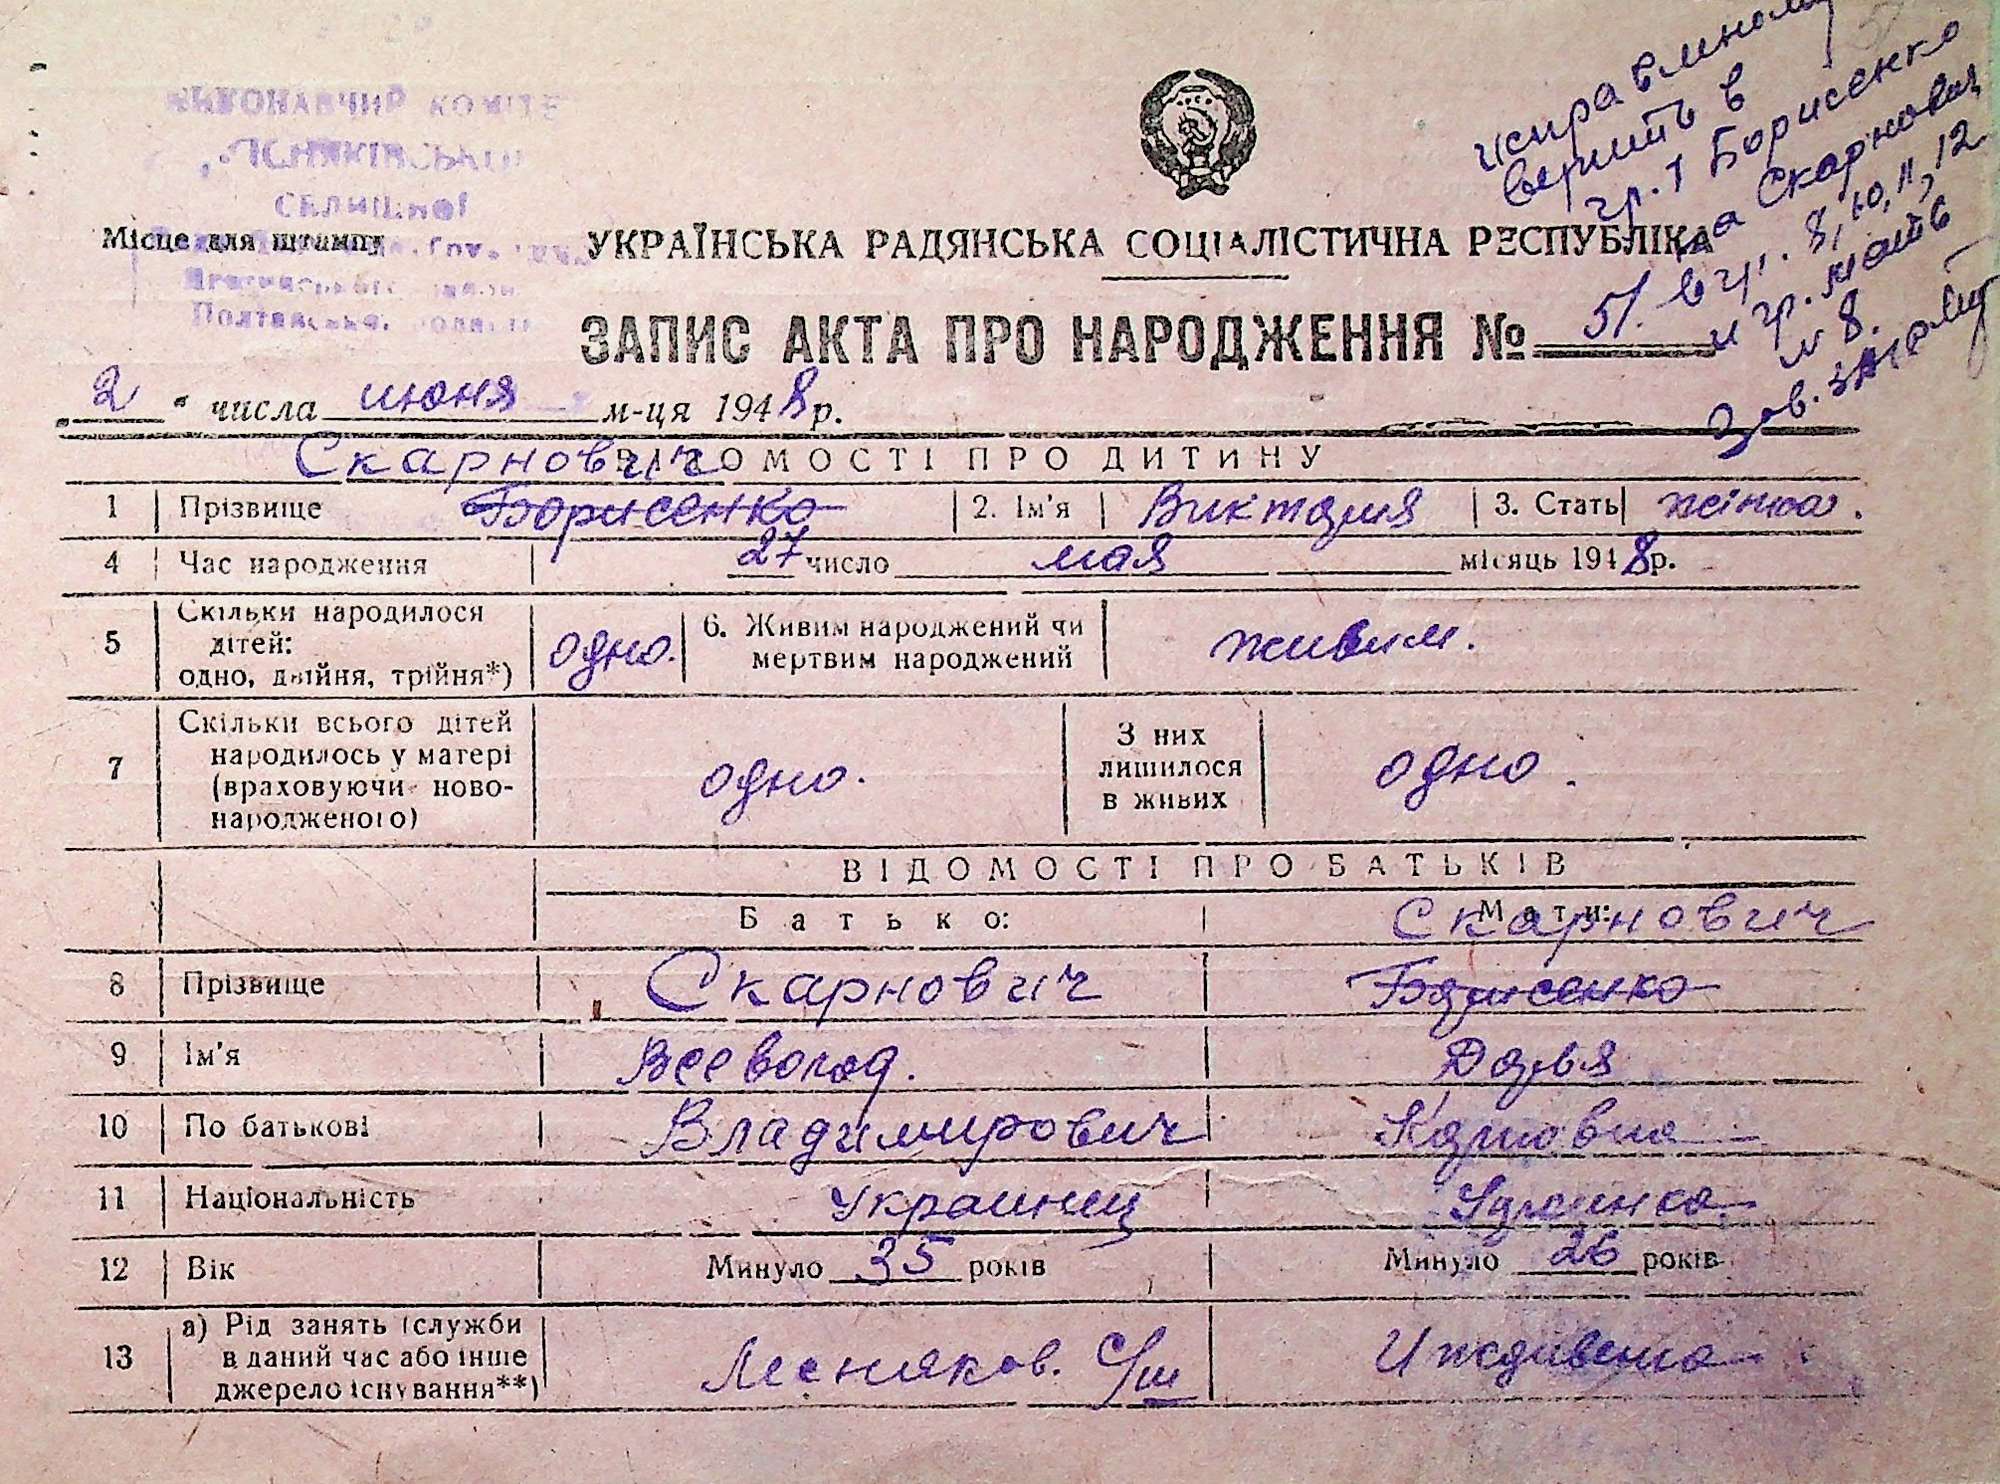 исправленому
верить в
гр. 1 Борисенко
на Скарнович
в гр. 8, 10, 11, 12
и гр. мать
N 8.
Зав.
ВИКОНАВЧИЙ КОМІТЕ
СЕЛИЩНОЇ
Місце для штампу
УКРАЇНСЬКА РАДЯНСЬКА СОЦІАЛІСТИЧНА РЕСПУБЛІКА
ЗАПИС АКТА ПРО НАРОДЖЕННЯ № 51.
„ 2 " числа июня м-ця 1948 р.
ВІДОМОСТІ ПРО ДИТИНУ
Скарнович
1 Прізвище Борисенко 2. Ім'я Виктория 3. Стать жінка.
4 Час народження 27 число мая місяць 1948 р.
5 Скільки народилося дітей: одно, двійня, трійня*) одно. 6. Живим народжений чи мертвим народжений живим.
7 Скільки всього дітей народилось у матері (враховуючи ново-народженого) одно. З них лишилося в живих одно.
ВІДОМОСТІ ПРО БАТЬКІВ
Батько: Мати:
Скарнович
8 Прізвище Скарнович Борисенко
9 Ім'я Всеволод. Дарья
10 По батькові Владимирович Карповна
11 Національність Украинец Украинка
12 Вік Минуло 35 років Минуло 26 років
13 а) Рід занять (служби в даний час або інше джерело існування**) Лесняков. С/ш Иждивенка